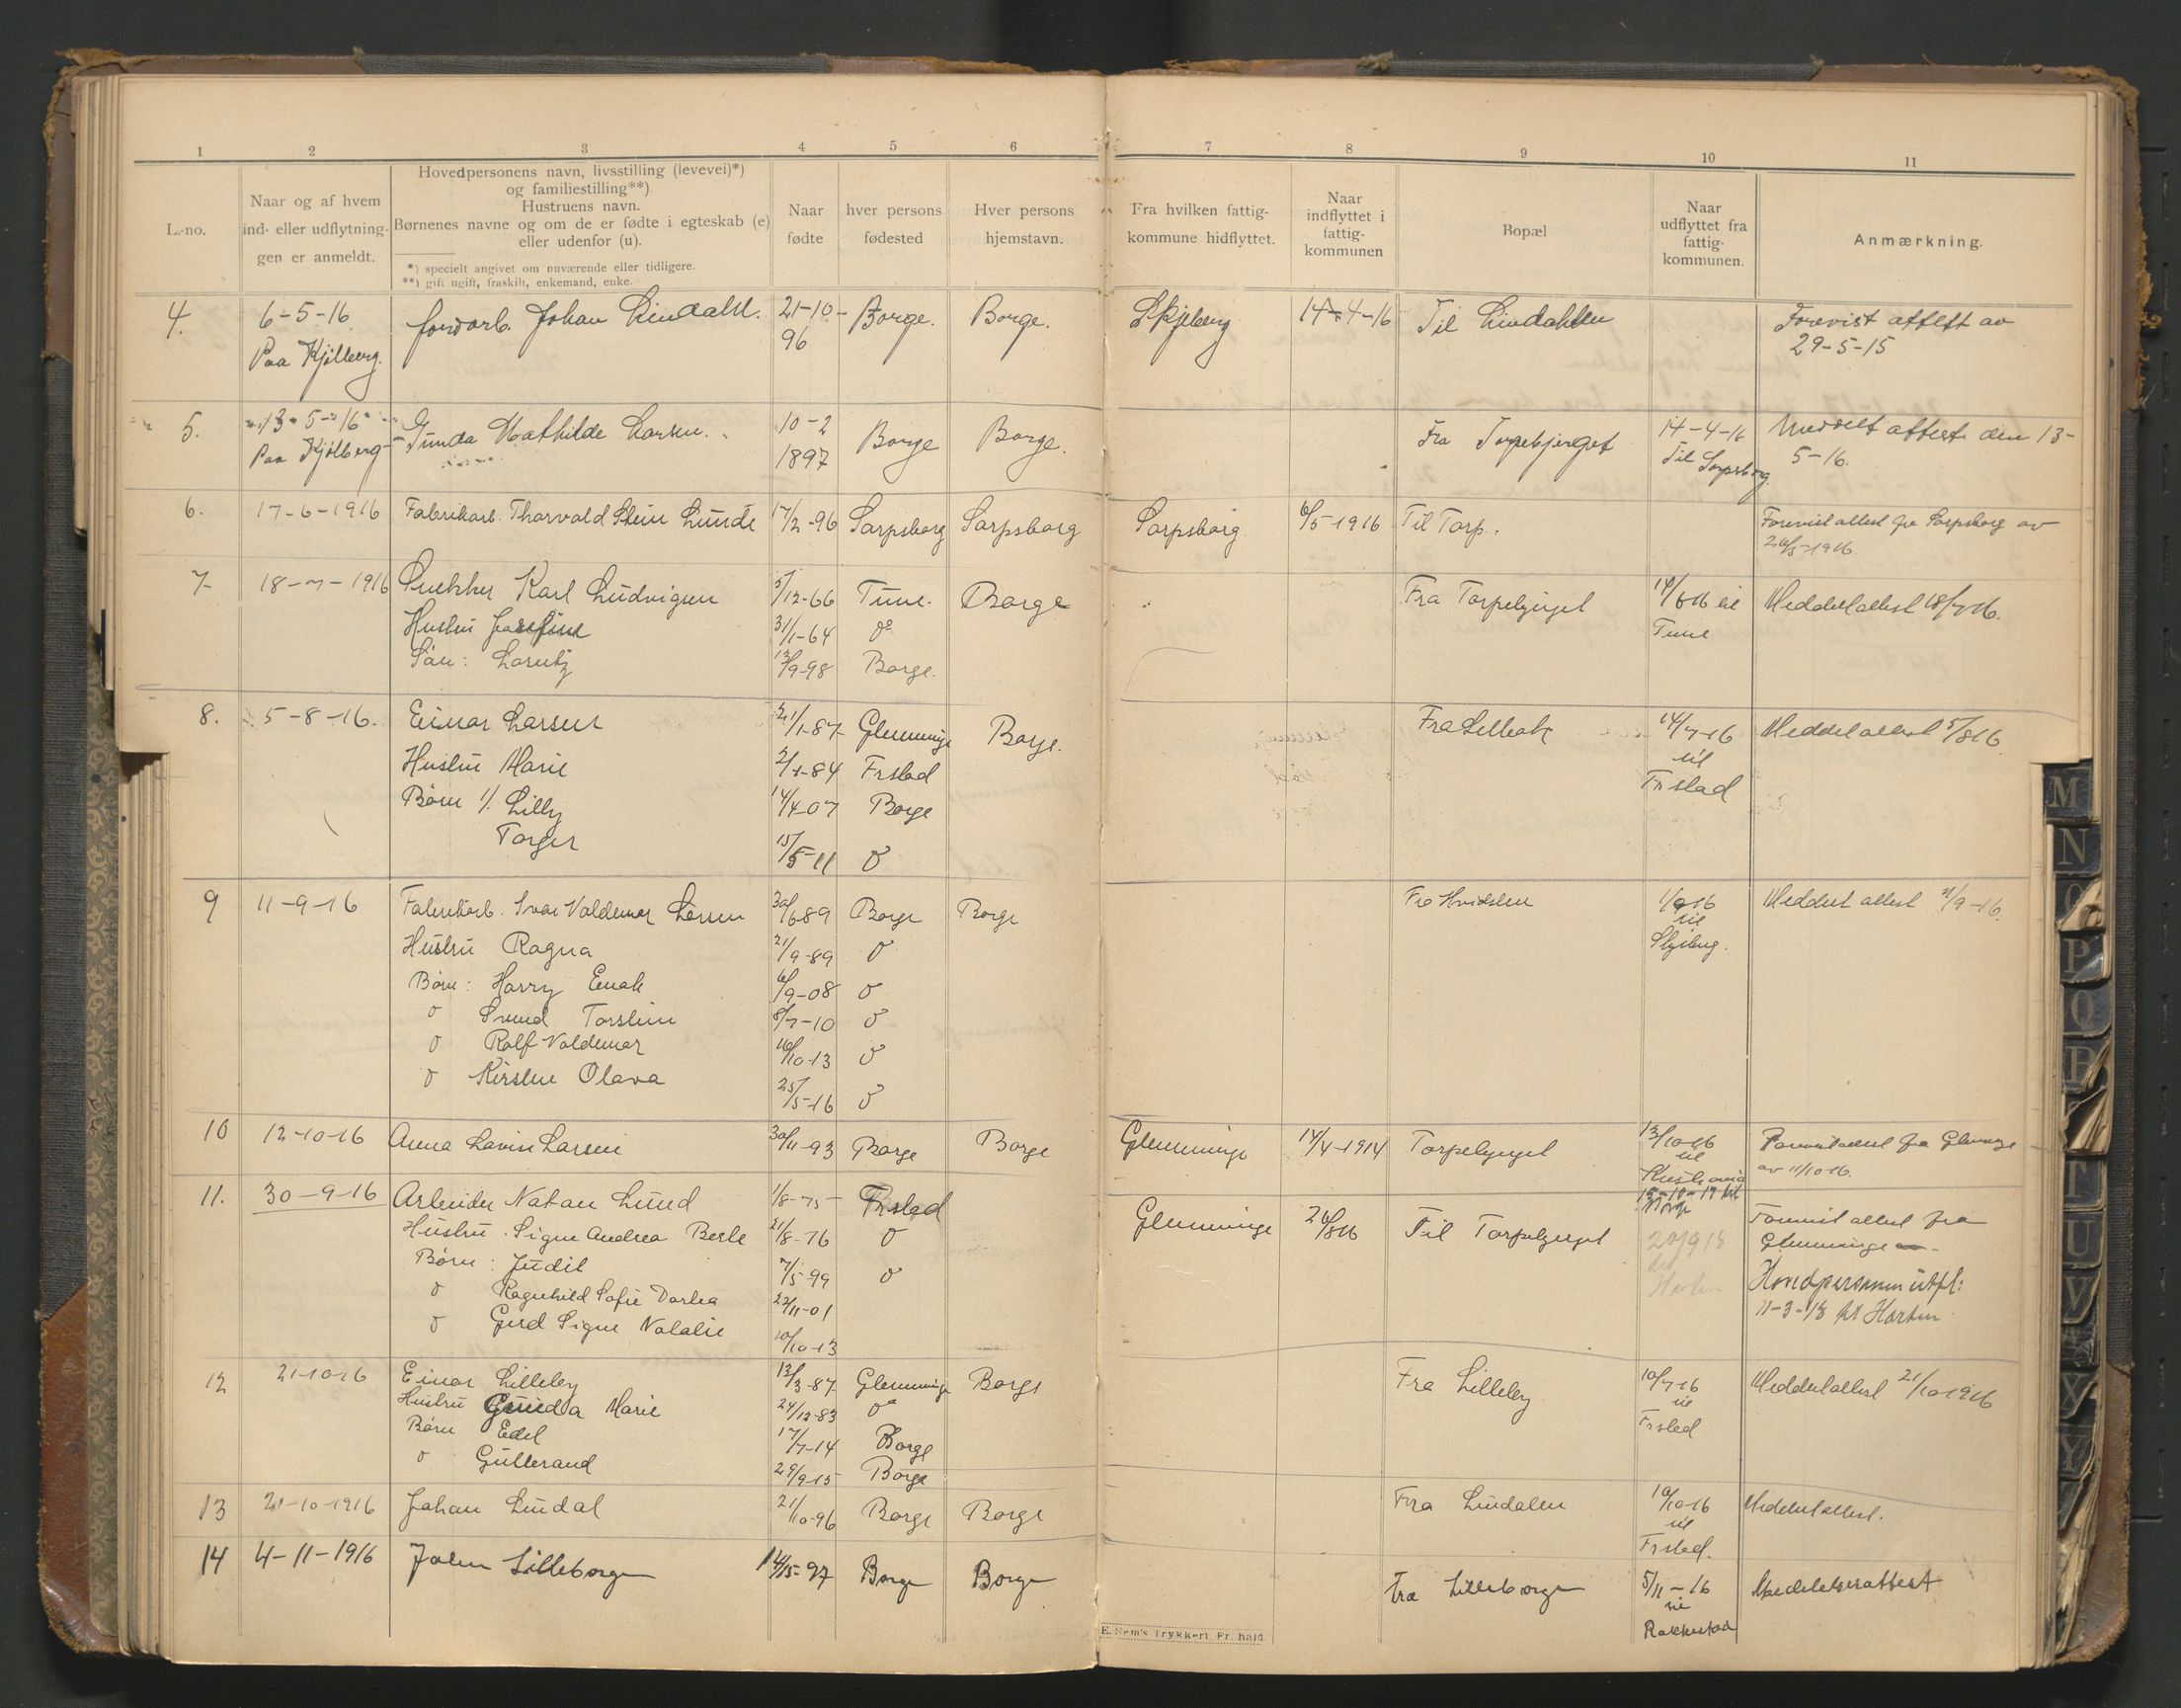 1 2 3 4 5 6 7 8 9 10 11
L.-no.
Naar og af hvem
ind- eller udflytnin-
gen er anmeldt.
Hovedpersonens navn, livsstilling (levevei)*)
og familiestilling**)
Hustruens navn.
Børnenes navne og om de er fødte i egteskab (e)
eller udenfor (u).
*) specielt angivet om nuværende eller tidligere.
**) gift ugift, fraskilt, enkemand, enke.
Naar
fødte
hver persons
fødested
Hver persons
hjemstavn.
Fra hvilken fattig-
kommune hidflyttet.
Naar
indflyttet i
fattig-
kommunen
Bopæl
Naar
udflyttet fra
fattig-
kommunen.
Anmærkning.
4. 6-5-16 Johan Lindahl. 21-10- Borge. Borge. Skjeberg 14-4-16 Til Lindahlen Forevist attest av
Paa Kjølberg. 96 29-5-15
5. 13-5-16 Gunda Mathilde Larsen. 10-2 Borge Borge. Fra Torpebjerget 14-4-16 Meddelt attest den 13-
Paa Kjølberg 1897 Til Sarpsborg 5-16.
6. 17-6-1916 Fabrikarb. Thorvald Stein Lunde 17/2-96 Sarpsborg Sarpsborg Sarpsborg 6/5-1916 Til Torp. Forevist attest fra Sarpsborg av
26/5-1916.
7 18-7-1916 Snekker Karl Ludvigsen 5/12-66 Tune. Borge Fra Torpebjerget til Meddelt attest 18/7-16.
Hustru Josefine 31/1-64 do Tune
Søn: Lorentz 13/9-98 Borge.
8. 5-8-16. Einar Larsen 21/1-87 Glemminge Borge. Fra Lilleby 14/7-16 Meddelt attest 5/8 16
Hustru Marie 2/1-84 Frstad til
Børn 1/. Lilly 14/4-07 Borge Frstad
Torger 15/5-11 do
9 11-9-16 Fabrikarb. Ivar Valdemar Larsen 30/6-89 Borge Borge Fra Hvidsten 1/9 16 Meddelt attest 11/9-16.
Hustru Ragna 21/9-89 do til
Børn: Harry Enok 6/9-08 do Skjeberg.
do Svend Torstein 8/7-10 do
do Rolf Valdemar 16/10-13 do
do Kirsten Olava 25/5-16 do
10 12-10-16 Anna Lovise Larsen 30/11-93 Borge Borge Glemminge 14/4-1914 Torpebjerget 13/10-16 Forevist attest fra Glemminge
til av 11/10-16.
Kristiania
15-10-17 til
Borge
11. 30-9-16 Arbeider Natan Lund 1/8-75 Frstad Glemminge 26/8 16 Til Torpebjerget Forevist attest fra
Hustru. Signe Andrea Berle 21/8-76 do 20/9 18 Glemminge
Børn: Judit 7/5-99 do til Hovedpersonen utfl:
do Ragnhild Sofie Dorlea 22/11-01 Horten 11-3-18 til Horten
do Gerd Signe Natalie 10/10-13
12 21-10-16 Einar Lilleby 13/3-87 Glemminge Borge Fra Lilleby 10/7-16 Meddelt attest 21/10 1916
Hustru Gunda Marie 24/12-83 do til
Børn Edel 17/7-14 Borge Frstad
do Gullerand 29/9-15 Borge
13 21-10-1916 Johan Lindal 21/10-96 Borge Borge Fra Lindalen 10/10-16 Meddelt attest.
til
Frstad.
14 4-11-1916 John Lilleborge 14/5-97 Borge Borge Fra Lilleborge 5/11-16 Meddelelsesattest
til
Rakkestad
E. Sem's Trykkeri, Fr.hald
M
N
O
P
Q
R
T
U
V
X
Y